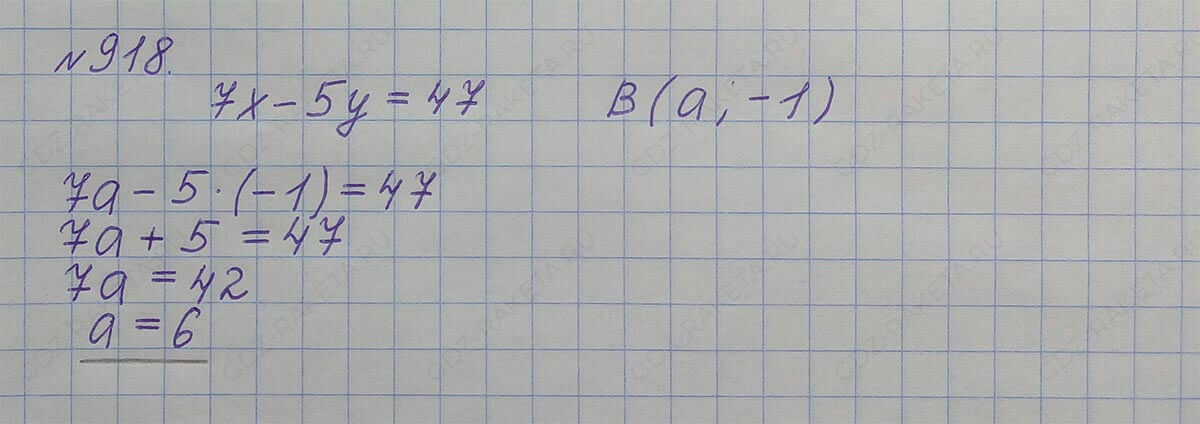 №918.
7x - 5y = 47 B(a; -1)
7a - 5·(-1) = 47
7a + 5 = 47
7a = 42
a = 6
GDZ-RAKETA.RU